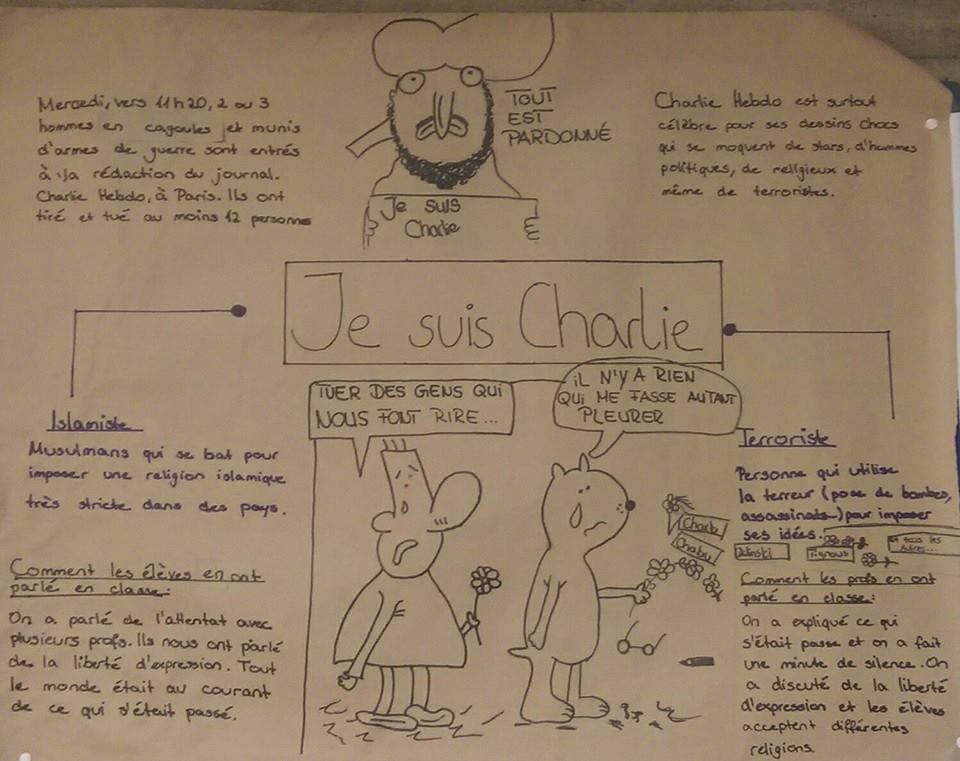 Mercredi, vers 11h20, 2 ou 3
hommes en cagoules et munis
d'armes de guerre sont entrés
à la rédaction du journal.
Charlie Hebdo, à Paris. Ils ont
tiré et tué au moins 12 personnes
TOUT
EST
PARDONNÉ
Je suis
Charlie
Charlie Hebdo est surtout
célèbre pour ses dessins chocs
qui se moquent de stars, d'hommes
politiques, de religieux et
même de terroristes.
Je suis Charlie
Islamiste
Musulmans qui se bat pour
imposer une religion islamique
très stricte dans des pays.
Comment les élèves en ont
parlé en classe:
On a parlé de l'attentat avec
plusieurs profs. Ils nous ont parlé
de la liberté d'expression. Tout
le monde était au courant
de ce qui s'était passé.
TUER DES GENS QUI
NOUS FONT RIRE...
IL N'Y A RIEN
QUI ME FASSE AUTANT
PLEURER
Charb
Chabu
Terroriste
Personne qui utilise
la terreur (pose de bombes,
assassinats...) pour imposer
ses idées.
Tignous
Et tous les
autres...
Comment les profs en ont
parlé en classe:
On a expliqué ce qui
s'était passé et on a fait
une minute de silence. On
a discuté de la liberté
d'expression et les élèves
acceptent différentes
religions.